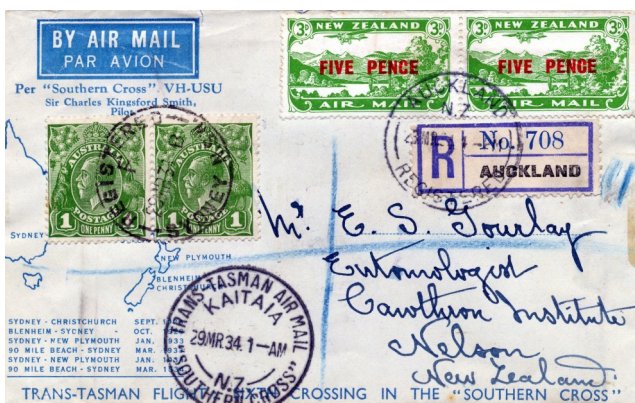 BY AIR MAIL
PAR AVION
Per "Southern Cross" VH-USU
Sir Charles Kingsford Smith,
Pilot
3D NEW ZEALAND 3D
FIVE PENCE
AIR MAIL
3D NEW ZEALAND 3D
FIVE PENCE
AIR MAIL
AUCKLAND
N.Z.
REGISTERED
R No. 708
AUCKLAND
AUSTRALIA
POSTAGE
1 ONE PENNY 1
AUSTRALIA
POSTAGE
1 ONE PENNY 1
REGISTERED
SYDNEY
SYDNEY
NEW PLYMOUTH
BLENHEIM
Mr. E. S. Gourlay
Entomologist
Cawthron Institute
Nelson
New Zealand.
TRANS-TASMAN AIR MAIL
KAITAIA
29MR34.1-AM
N.Z.
"SOUTHERN CROSS"
SYDNEY - CHRISTCHURCH SEPT.
BLENHEIM - SYDNEY - OCT.
SYDNEY - NEW PLYMOUTH JAN. 1933
90 MILE BEACH - SYDNEY MAR.
SYDNEY - NEW PLYMOUTH JAN.
90 MILE BEACH - SYDNEY MAR.
TRANS-TASMAN FLIGHT CROSSING IN THE "SOUTHERN CROSS"